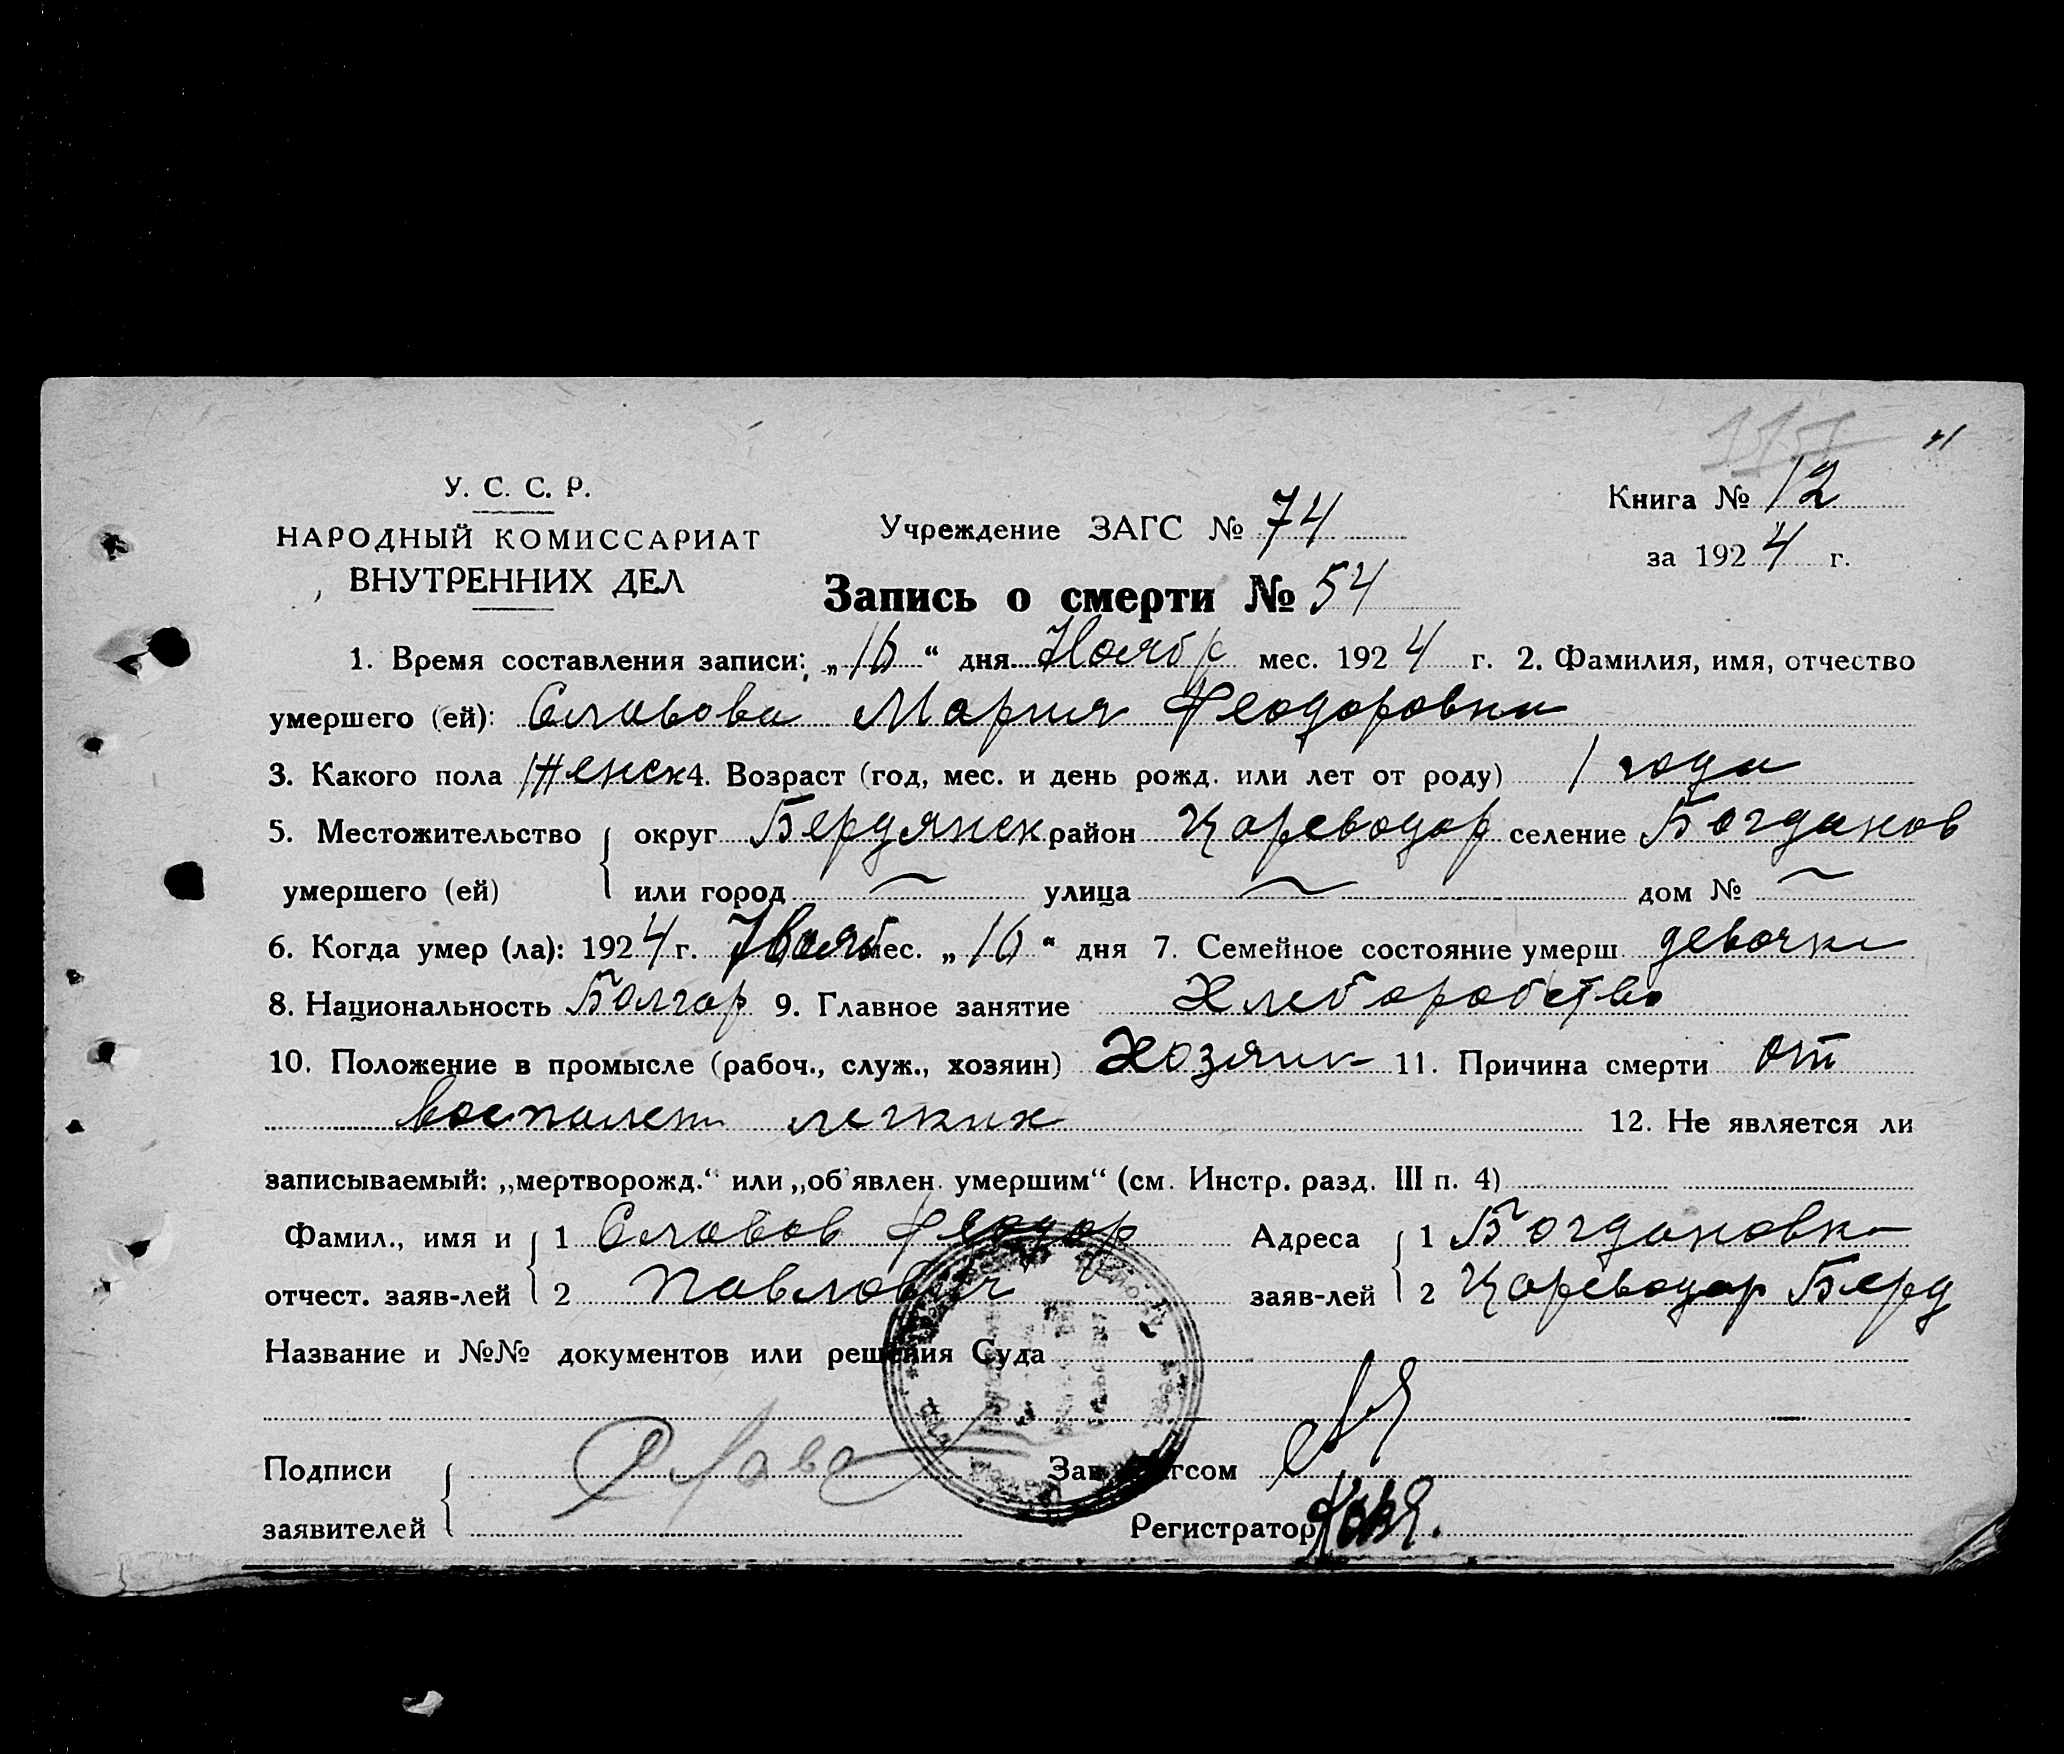 У. С. С. Р.
НАРОДНЫЙ КОМИССАРИАТ
ВНУТРЕННИХ ДЕЛ
Учреждение ЗАГС № 74
Книга № 12
за 1924 г.
Запись о смерти № 54
1. Время составления записи: „16“ дня Ноябр мес. 1924 г. 2. Фамилия, имя, отчество
умершего (ей): Славова Мария Феодоровна
3. Какого пола Женск 4. Возраст (год, мес. и день рожд. или лет от роду) 1 года
5. Местожительство умершего (ей) округ Бердянск район Цареводар селение Богданов
или город — улица — дом № —
6. Когда умер (ла): 1924 г. Нояб мес. „16“ дня 7. Семейное состояние умерш. девочка
8. Национальность Болгар 9. Главное занятие Хлеборобство
10. Положение в промысле (рабоч., служ., хозяин) Хозяин 11. Причина смерти от
воспален легких 12. Не является ли
записываемый: „мертворожд.“ или „об'явлен. умершим“ (см. Инстр. разд. III п. 4)
Фамил., имя и 1 Славов Феодор Адреса 1 Богдановка
отчест. заяв-лей 2 Павлович заяв-лей 2 Цареводар Берд
Название и №№ документов или решения Суда
Подписи Зав. Загсом
заявителей Регистратор